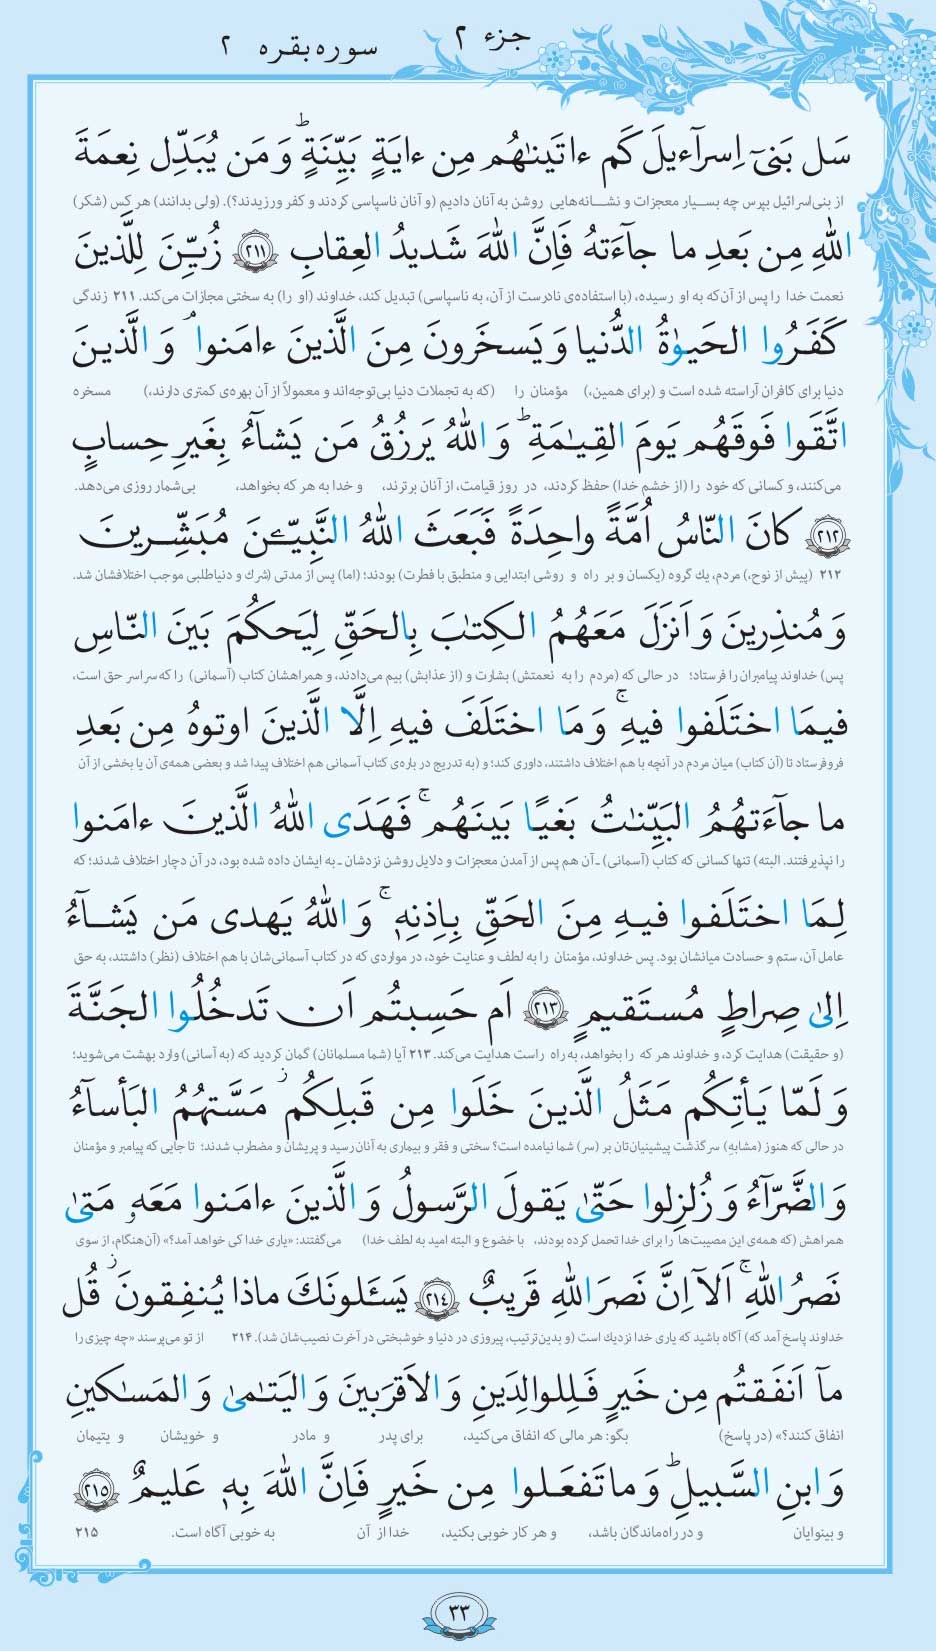 جزء ۲
سوره بقره ۲
سَل بَنیٓ اِسرآءیلَ کَم ءاتَینٰهُم مِن ءایَةٍ بَیِّنَةٍ ۗ وَ مَن یُبَدِّل نِعمَةَ
از بنی‌اسرائیل بپرس چه بسیار معجزات و نشانه‌هایی روشن به آنان دادیم (و آنان ناسپاسی کردند و کفر ورزیدند؟). (ولی بدانند) هر کس (شکر)
اللّٰهِ مِن بَعدِ ما جآءَتهُ فَاِنَّ اللّٰهَ شَدیدُ العِقابِ ﴿۲۱۱﴾ زُیِّنَ لِلَّذینَ
نعمت خدا را پس از آن‌که به او رسیده، (با استفاده‌ی نادرست از آن، به ناسپاسی) تبدیل کند، خداوند (او را) به سختی مجازات می‌کند. ۲۱۱ زندگی
کَفَرُوا الحَیوٰةُ الدُّنیا وَ یَسخَرونَ مِنَ الَّذینَ ءامَنوا ۘ وَ الَّذینَ
دنیا برای کافران آراسته شده است و (برای همین،) مؤمنان را (که به تجملات دنیا بی‌توجه‌اند و معمولاً از آن بهره‌ی کمتری دارند،) مسخره
اتَّقَوا فَوقَهُم یَومَ القِیٰمَةِ ۗ وَ اللّٰهُ یَرزُقُ مَن یَشآءُ بِغَیرِ حِسابٍ
می‌کنند، و کسانی که خود را (از خشم خدا) حفظ کردند، در روز قیامت، از آنان برترند، و خدا به هر که بخواهد، بی‌شمار روزی می‌دهد.
﴿۲۱۲﴾ کانَ النّاسُ اُمَّةً واحِدَةً فَبَعَثَ اللّٰهُ النَّبِیّٖنَ مُبَشِّرینَ
۲۱۲ (پیش از نوح،) مردم، یك گروه (یکسان و بر راه و روشی ابتدایی و منطبق با فطرت) بودند؛ (اما) پس از مدتی (شرك و دنیاطلبی موجب اختلافشان شد.
وَ مُنذِرینَ وَ اَنزَلَ مَعَهُمُ الکِتٰبَ بِالحَقِّ لِیَحکُمَ بَینَ النّاسِ
پس) خداوند پیامبران را فرستاد؛ در حالی که (مردم را به نعمتش) بشارت و (از عذابش) بیم می‌دادند، و همراهشان کتاب (آسمانی) را که سراسر حق است،
فیمَا اختَلَفوا فیهِ ۚ وَ مَا اختَلَفَ فیهِ اِلَّا الَّذینَ اوتوهُ مِن بَعدِ
فروفرستاد تا (آن کتاب) میان مردم در آنچه با هم اختلاف داشتند، داوری کند؛ و (به تدریج در باره‌ی کتاب آسمانی هم اختلاف پیدا شد و بعضی همه‌ی آن یا بخشی از آن
ما جآءَتهُمُ البَیِّنٰتُ بَغیًا بَینَهُم ۚ فَهَدَی اللّٰهُ الَّذینَ ءامَنوا
را نپذیرفتند. البته) تنها کسانی که کتاب (آسمانی) ـ آن هم پس از آمدن معجزات و دلایل روشن نزدشان ـ به ایشان داده شده بود، در آن دچار اختلاف شدند؛ که
لِمَا اختَلَفوا فیهِ مِنَ الحَقِّ بِاِذنِهٖ ۚ وَ اللّٰهُ یَهدی مَن یَشآءُ
عامل آن، ستم و حسادت میانشان بود. پس خداوند، مؤمنان را به لطف و عنایت خود، در مواردی که در کتاب آسمانی‌شان با هم اختلاف (نظر) داشتند، به حق
اِلیٰ صِراطٍ مُستَقیمٍ ﴿۲۱۳﴾ اَم حَسِبتُم اَن تَدخُلُوا الجَنَّةَ
(و حقیقت) هدایت کرد، و خداوند هر که را بخواهد، به راه راست هدایت می‌کند. ۲۱۳ آیا (شما مسلمانان) گمان کردید که (به آسانی) وارد بهشت می‌شوید؛
وَ لَمّا یَأتِکُم مَثَلُ الَّذینَ خَلَوا مِن قَبلِکُم ۖ مَسَّتهُمُ البَأسآءُ
در حالی که هنوز (مشابهِ) سرگذشت پیشینیان‌تان بر (سر) شما نیامده است؟ سختی و فقر و بیماری به آنان رسید و پریشان و مضطرب شدند؛ تا جایی که پیامبر و مؤمنان
وَ الضَّرّآءُ وَ زُلزِلوا حَتّیٰ یَقولَ الرَّسولُ وَ الَّذینَ ءامَنوا مَعَهٗ مَتیٰ
همراهش (که همه‌ی این مصیبت‌ها را برای خدا تحمل کرده بودند، با خضوع و البته امید به لطف خدا) می‌گفتند: «یاری خدا کی خواهد آمد؟» (آن‌هنگام، از سوی
نَصرُ اللّٰهِ ۗ اَلآ اِنَّ نَصرَ اللّٰهِ قَریبٌ ﴿۲۱٤﴾ یَسـَٔلونَكَ ماذا یُنفِقونَ ۖ قُل
خداوند پاسخ آمد که) آگاه باشید که یاری خدا نزدیك است (و بدین‌ترتیب، پیروزی در دنیا و خوشبختی در آخرت نصیب‌شان شد). ۲۱۴ از تو می‌پرسند «چه چیزی را
مآ اَنفَقتُم مِن خَیرٍ فَلِلوالِدَینِ وَ الاَقرَبینَ وَ الیَتٰمیٰ وَ المَسٰکینِ
انفاق کنند؟» (در پاسخ) بگو: هر مالی که انفاق می‌کنید، برای پدر و مادر و خویشان و یتیمان
وَ ابنِ السَّبیلِ ۗ وَ ما تَفعَلوا مِن خَیرٍ فَاِنَّ اللّٰهَ بِهٖ عَلیمٌ ﴿۲۱۵﴾
و بینوایان و در راه‌ماندگان باشد، و هر کار خوبی بکنید، خدا از آن به خوبی آگاه است. ۲۱۵
۳۳